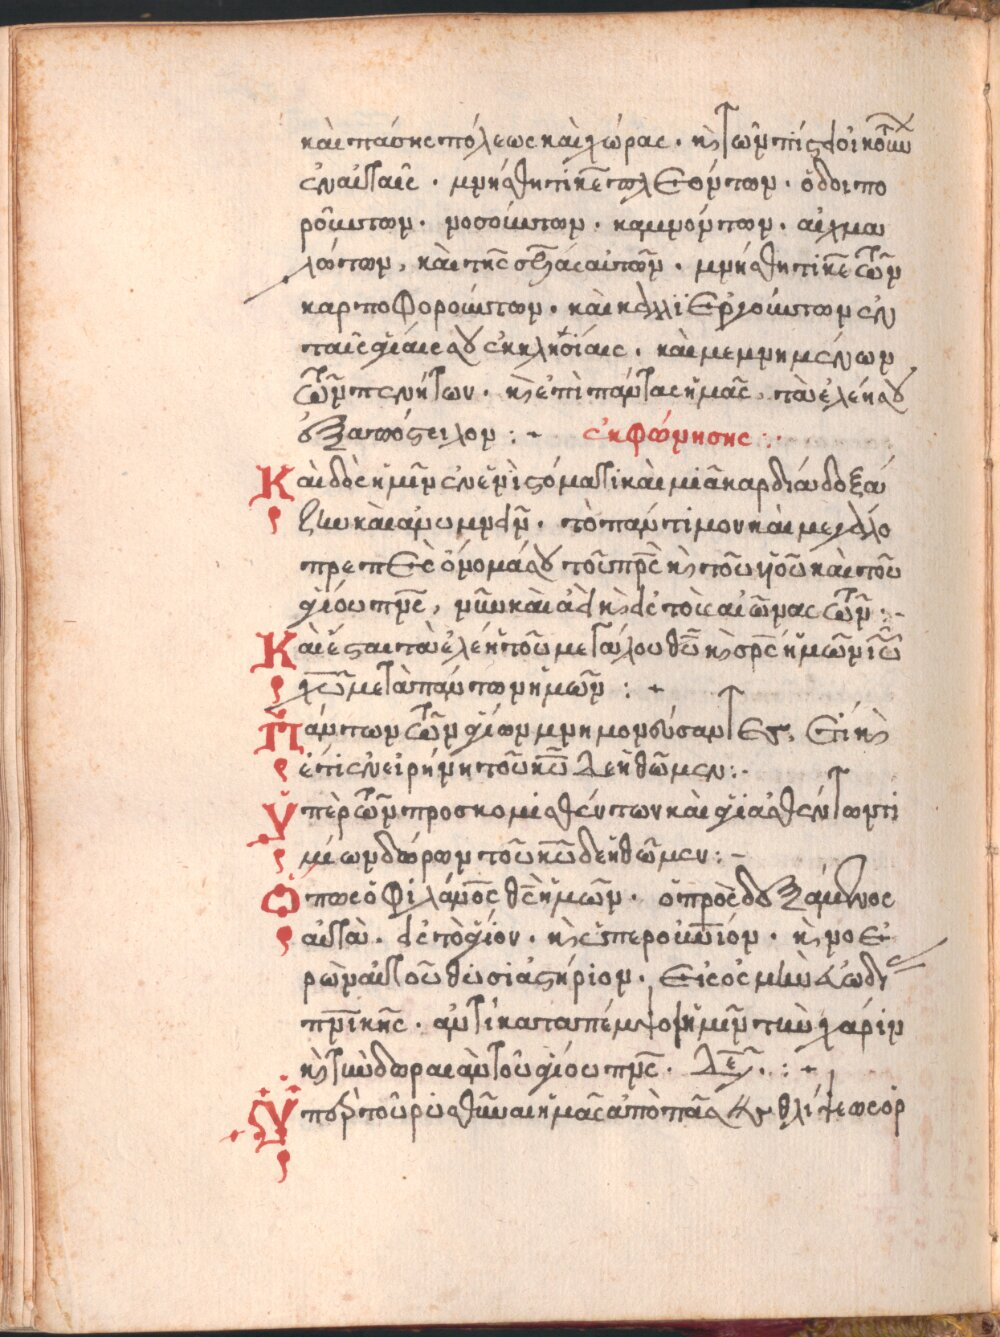 και πάσης πόλεως και χώρας · κ(αι) των πίστει οικούντων
εν αυταίς · μνήσθητι κ(ύρι)ε πλεόντων · οδοιπο
ρούντων · νοσούντων · καμνόντων · αιχμα
λώτων, και της σ(ωτη)ρίας αυτών · μνήσθητι κ(ύρι)ε των
καρποφορούντων · και καλλιεργούντων εν
ταις αγίαις σου εκκλησίαις · και μεμνημένων
των πενήτων · κ(αι) επί πάντας ημάς, τα ελέη σου
εξαπόστειλον : ~ εκφώνησης :
Και δος ημίν εν ενί στόματι και μιά καρδία δοξά
ζειν και ανυμνείν · το πάντιμον και μεγαλο
πρεπές όνομά σου του π(ατ)ρ(ό)ς κ(αι) του υιού και του
αγίου πν(εύματο)ς, νυν και αεί κ(αι) εις τους αιώνας των :
Και έσται τα ελέη του μεγάλου θ(εο)ύ κ(αι) σ(ωτῆ)ρ(ο)ς ημών ι(ησο)ύ
χ(ριστο)ύ μετά πάντων ημών : ~
Πάντων των αγίων μνημονεύσαντες, έτι κ(αι)
έτι εν ειρήνη του κ(υρίο)υ δεηθώμεν :
Υπέρ των προσκομισθέντων και αγιασθέντων τι
μίων δώρων του κ(υρίο)υ δεηθώμεν : ~
Όπως ο φιλάν(θρωπ)ος θ(εό)ς ημών · ο προσδεξάμενος
αυτά · εις το άγιον · κ(αι) υπερουράνιον · κ(αι) νοε
ρόν αυτού θυσιαστήριον · εις οσμήν ευωδί
πν(ευματ)ικής · αντικαταπέμψοι ημίν την χάριν
κ(αι) την δωρεάν του αγίου πν(εύματο)ς · δε :
Υπέρ του ρυσθήναι ημάς από πάσης θλίψεως ορ